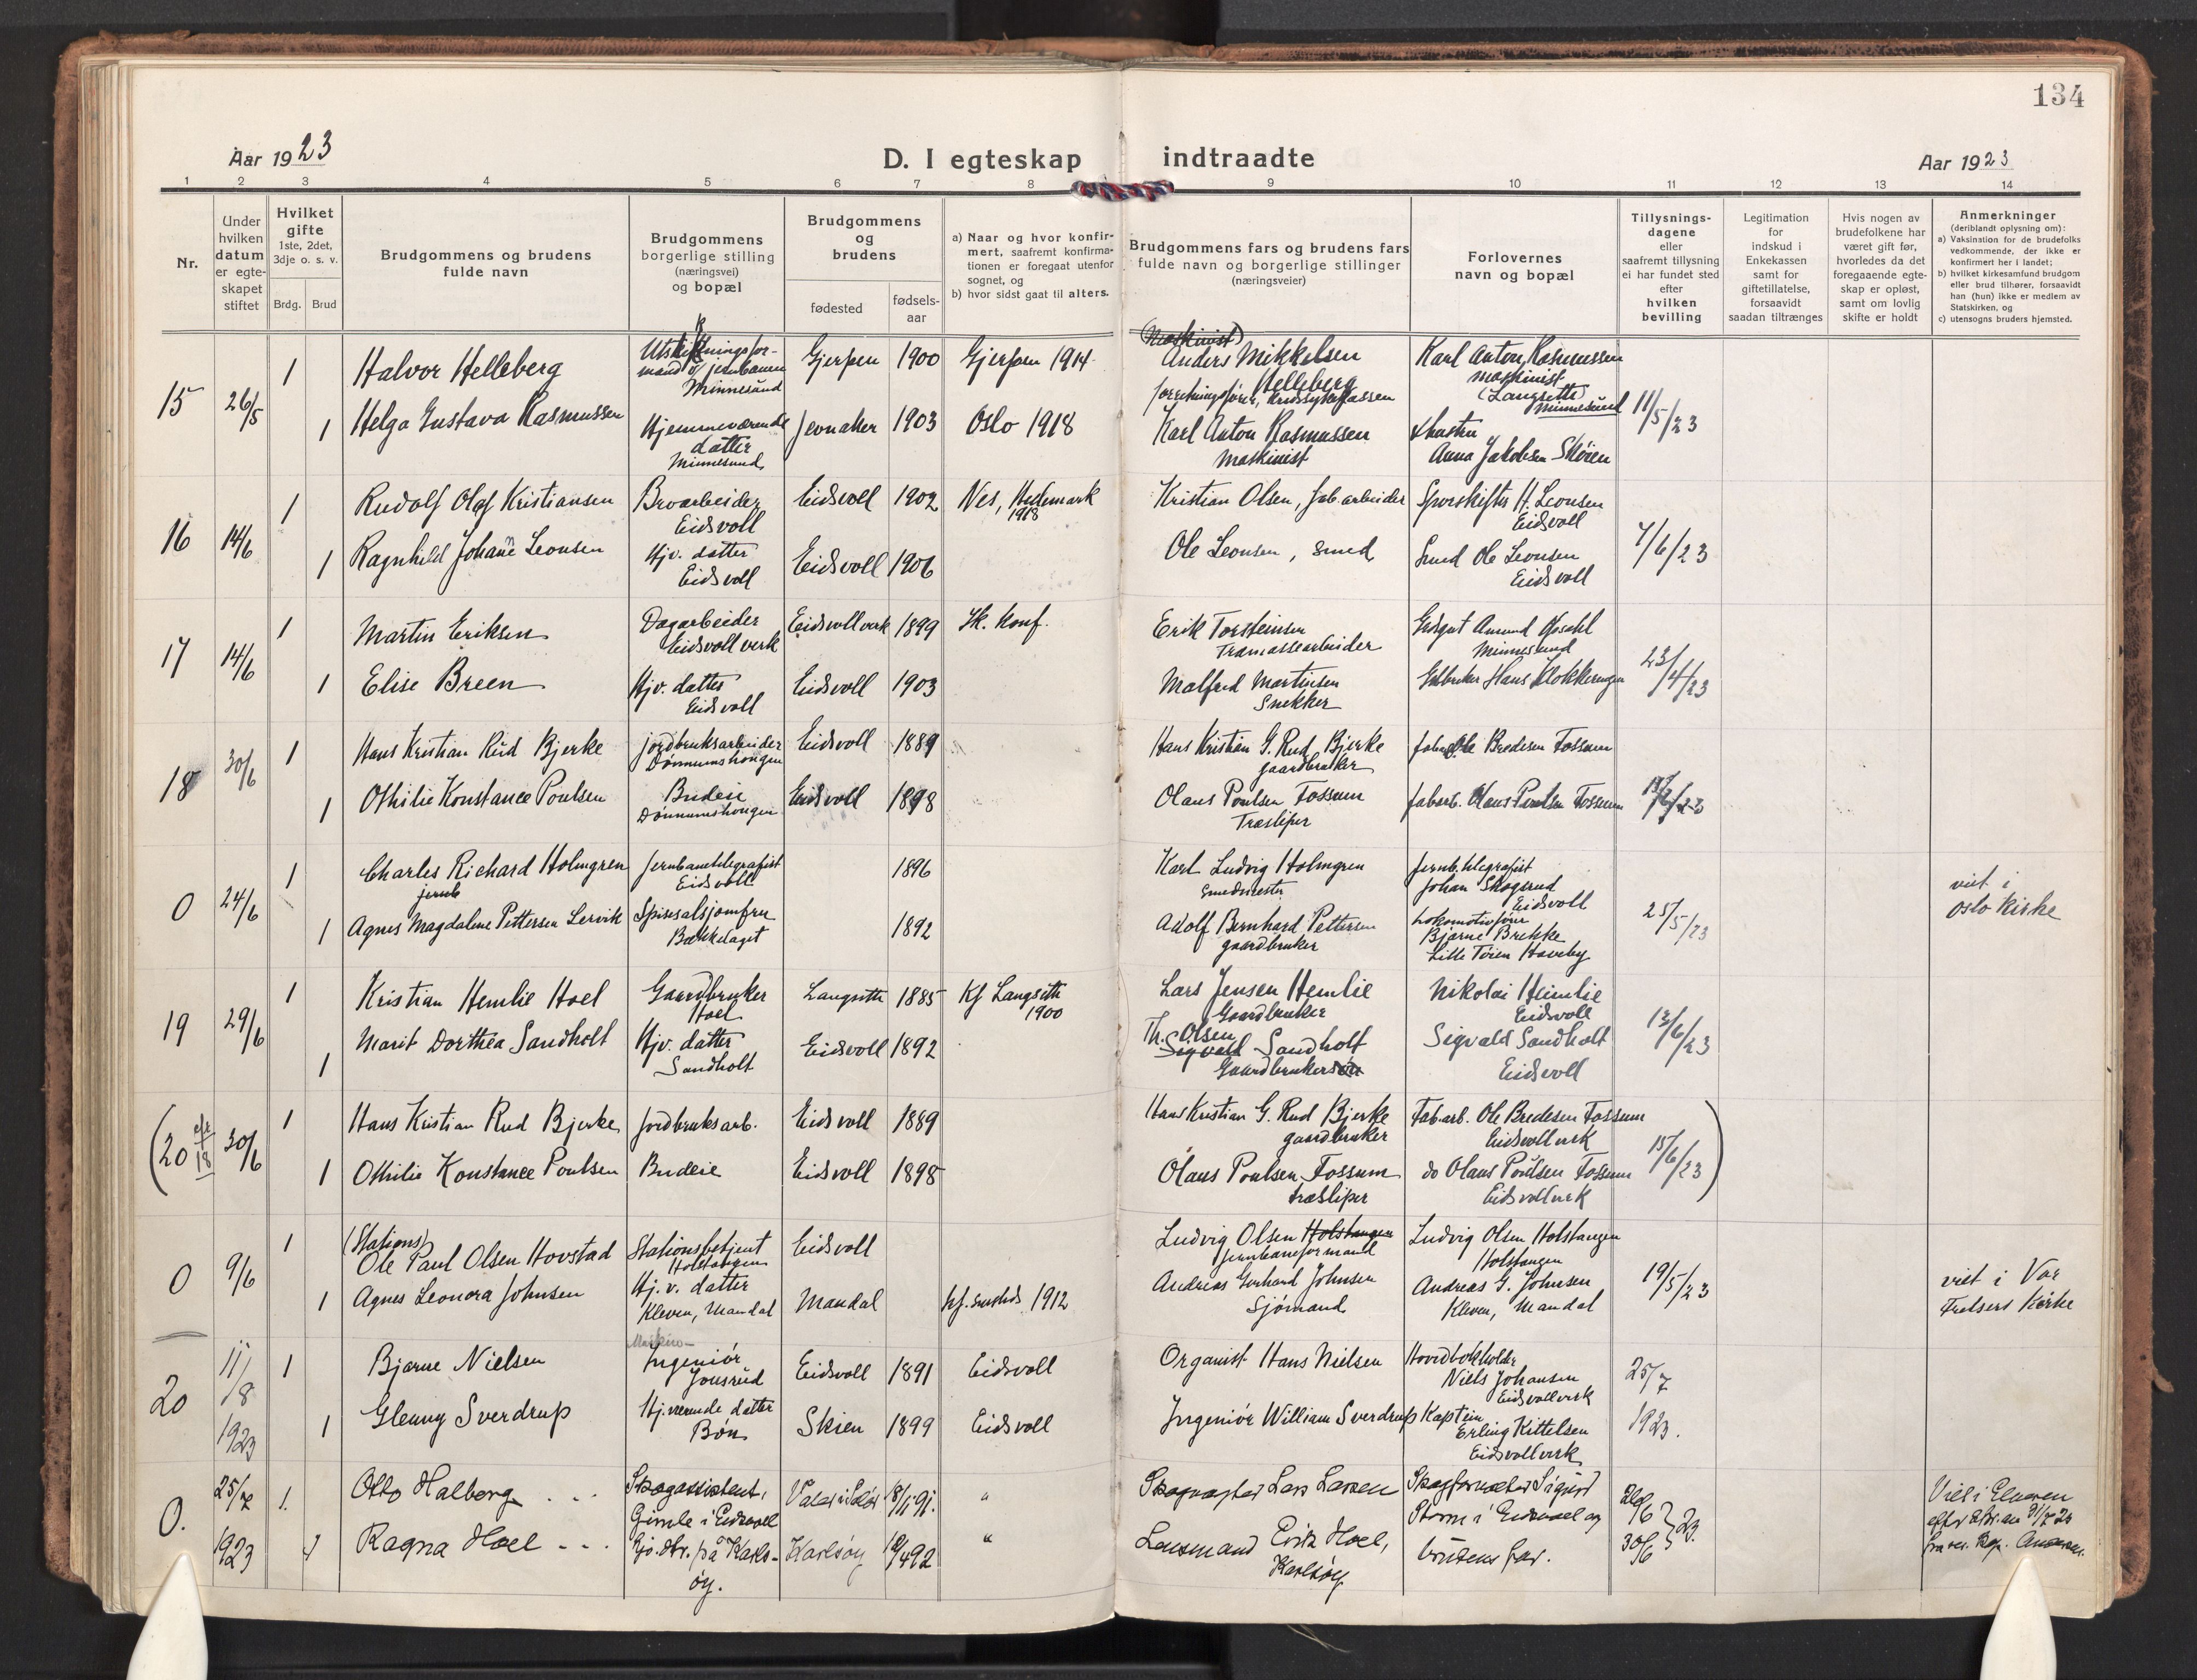 134
Aar 1923
D. I egteskap indtraadte
Aar 1923
1 2 3 4 5 6 7 8 9 10 11 12 13 14
Nr.
Under hvilken datum er egteskapet stiftet
Hvilket gifte 1ste, 2det, 3dje o. s. v.
Brdg. Brud
Brudgommens og brudens fulde navn
Brudgommens borgerlige stilling (næringsvei) og bopæl
Brudgommens og brudens
fødested
fødsels-aar
a) Naar og hvor konfirmert, saafremt konfirmationen er foregaat utenfor sognet, og
b) hvor sidst gaat til alters.
Brudgommens fars og brudens fars fulde navn og borgerlige stillinger (næringsveier)
Forlovernes navn og bopæl
Tillysningsdagene eller saafremt tillysning ei har fundet sted efter hvilken bevilling
Legitimation for indskud i Enkekassen samt for giftetillatelse, forsaavidt saadan tiltrænges
Hvis nogen av brudefolkene har været gift før, hvorledes da det foregaaende egteskap er opløst, samt om lovlig skifte er holdt
Anmerkninger (deriblandt oplysning om):
a) Vaksination for de brudefolks vedkommende, der ikke er konfirmert her i landet;
b) hvilket kirkesamfund brudgom eller brud tilhører, forsaavidt han (hun) ikke er medlem av Statskirken, og
c) utensogns bruders hjemsted.
15 26/5 1 Halvor Helleberg
Minnesund Gjerpen 1900 Gjerpen 1914
(Maskinist)
Anders Mikkelsen Helleberg
Karl Anton Rasmussen
maskinist
(Langseth)
Minnesund
11/5/23
1 Helga Gustava Rasmussen
Hjemmeværende datter
Minnesund Jevnaker 1903 Oslo 1918
Karl Anton Rasmussen
Maskinist
Anna Jakobsen Skøien
16 14/6 1 Rudolf Olaf Kristiansen
Broarbeider
Eidsvoll Eidsvoll 1902 Nes, Hedemark
1918
Kristian Olsen, fab.arbeider
H. Leonsen
Eidsvoll
7/6/23
1 Ragnhild Johane Leonsen
Hjv. datter
Eidsvoll Eidsvoll 1906
Ole Leonsen, smed
Smed Ole Leonsen
Eidsvoll
17 14/6 1 Martin Eriksen
Dagarbeider
Eidsvoll verk Eidsvoll verk 1899 Ik. konf.
Erik Torsteinsen
Tramassearbeider
Amund
Minnesund
23/4/23
1 Elise Breen
Hjv. datter
Eidsvoll Eidsvoll 1903
Malfred Martinsen
Snekker
Hans Klokkerengen
18 30/6 1 Hans Kristian Rud Bjerke
jordbruksarbeider
Eidsvoll 1889
Hans Kristian G. Rud Bjerke
gaardbruker
Ole Bredesen Fossum
1 Othilie Konstance Poulsen
Budeie
Eidsvoll 1898
Olaus Poulsen Fossum
Træsliper
fabarb. Olaus Poulsen Fossum
0 24/6 1 Charles Richard Holmgren
jernb
Jernbanetelegrafist
Eidsvoll 1896
Karl Ludvig Holmgren
Smedmester
Jernb.telegrafist
Johan Skogsrud
Eidsvoll
25/5/23
viet i
Oslo Kirke
1 Agnes Magdalene Pettersen Lervik
Spisesalsjomfru
Bækkelaget 1892
Adolf Bernhard Pettersen
gaardbruker
Lokomotivfører
Bjarne Brekke
Lille Tøien Haveby
19 29/6 1 Kristian Hemlie Hoel
Gaardbruker
Hoel Langseth 1885 Kf Langseth
1900
Lars Jensen Hemlie
Gaardbruker
Nikolai Heimlie
Eidsvoll
13/6/23
1 Marit Dorthea Sandholt
Hjv. datter
Sandholt Eidsvoll 1892
Th. Olsen
Sigvald Sandholt
Gaardbruker
Sigvald Sandholt
Eidsvoll
(20 18 30/6 1 Hans Kristian Rud Bjerke
Jordbruksarb. Eidsvoll 1889
Hans Kristian G. Rud Bjerke
gaardbruker
Fab.arb. Ole Bredesen Fossum
Eidsvoll verk
15/6/23)
1 Othilie Konstance Poulsen
Budeie Eidsvoll 1898
Olaus Poulsen Fossum
træsliper
do Olaus Poulsen Fossum
Eidsvoll verk
0 9/6 1 (Stations)
Ole Paul Olsen Hovstad
Stationsbetjent
Holstangen Eidsvoll
Ludvig Olsen Holstangen
jernbaneformand
Ludvig Olsen Holstangen
Holstangen
19/5/23
viet i Vor
Frelsers Kirke
1 Agnes Leonora Johnsen
Hj. v. datter
Kleven, Mandal Mandal 1912
Andreas Gerhard Johnsen
Sjømand
Andreas G. Johnsen
Kleven, Mandal
20 11/8 1923 1 Bjarne Nielsen
Maskin-
Ingeniør
Jønsrud Eidsvoll 1891 Eidsvoll
Organist Hans Nielsen
Hovedbokholder
Niels Johansen
Eidsvoll verk
25/7
1923.
1 Glenny Sverdrup
Hj.værende datter
Bøn Skien 1899 Eidsvoll
Ingeniør William Sverdrup
Kaptein
Erling Kittelsen
Eidsvoll verk
0. 25/7 1923 1. Otto Halberg
Skogassistent,
Gimle i Eidsvoll
Lars Larsen
Storm i Eidsvoll og
30/6
23.
1 Ragna Hoel
på Karlsøy.
Karlsøy
Lensmand Hoel,
Karlsøy
brudens far.